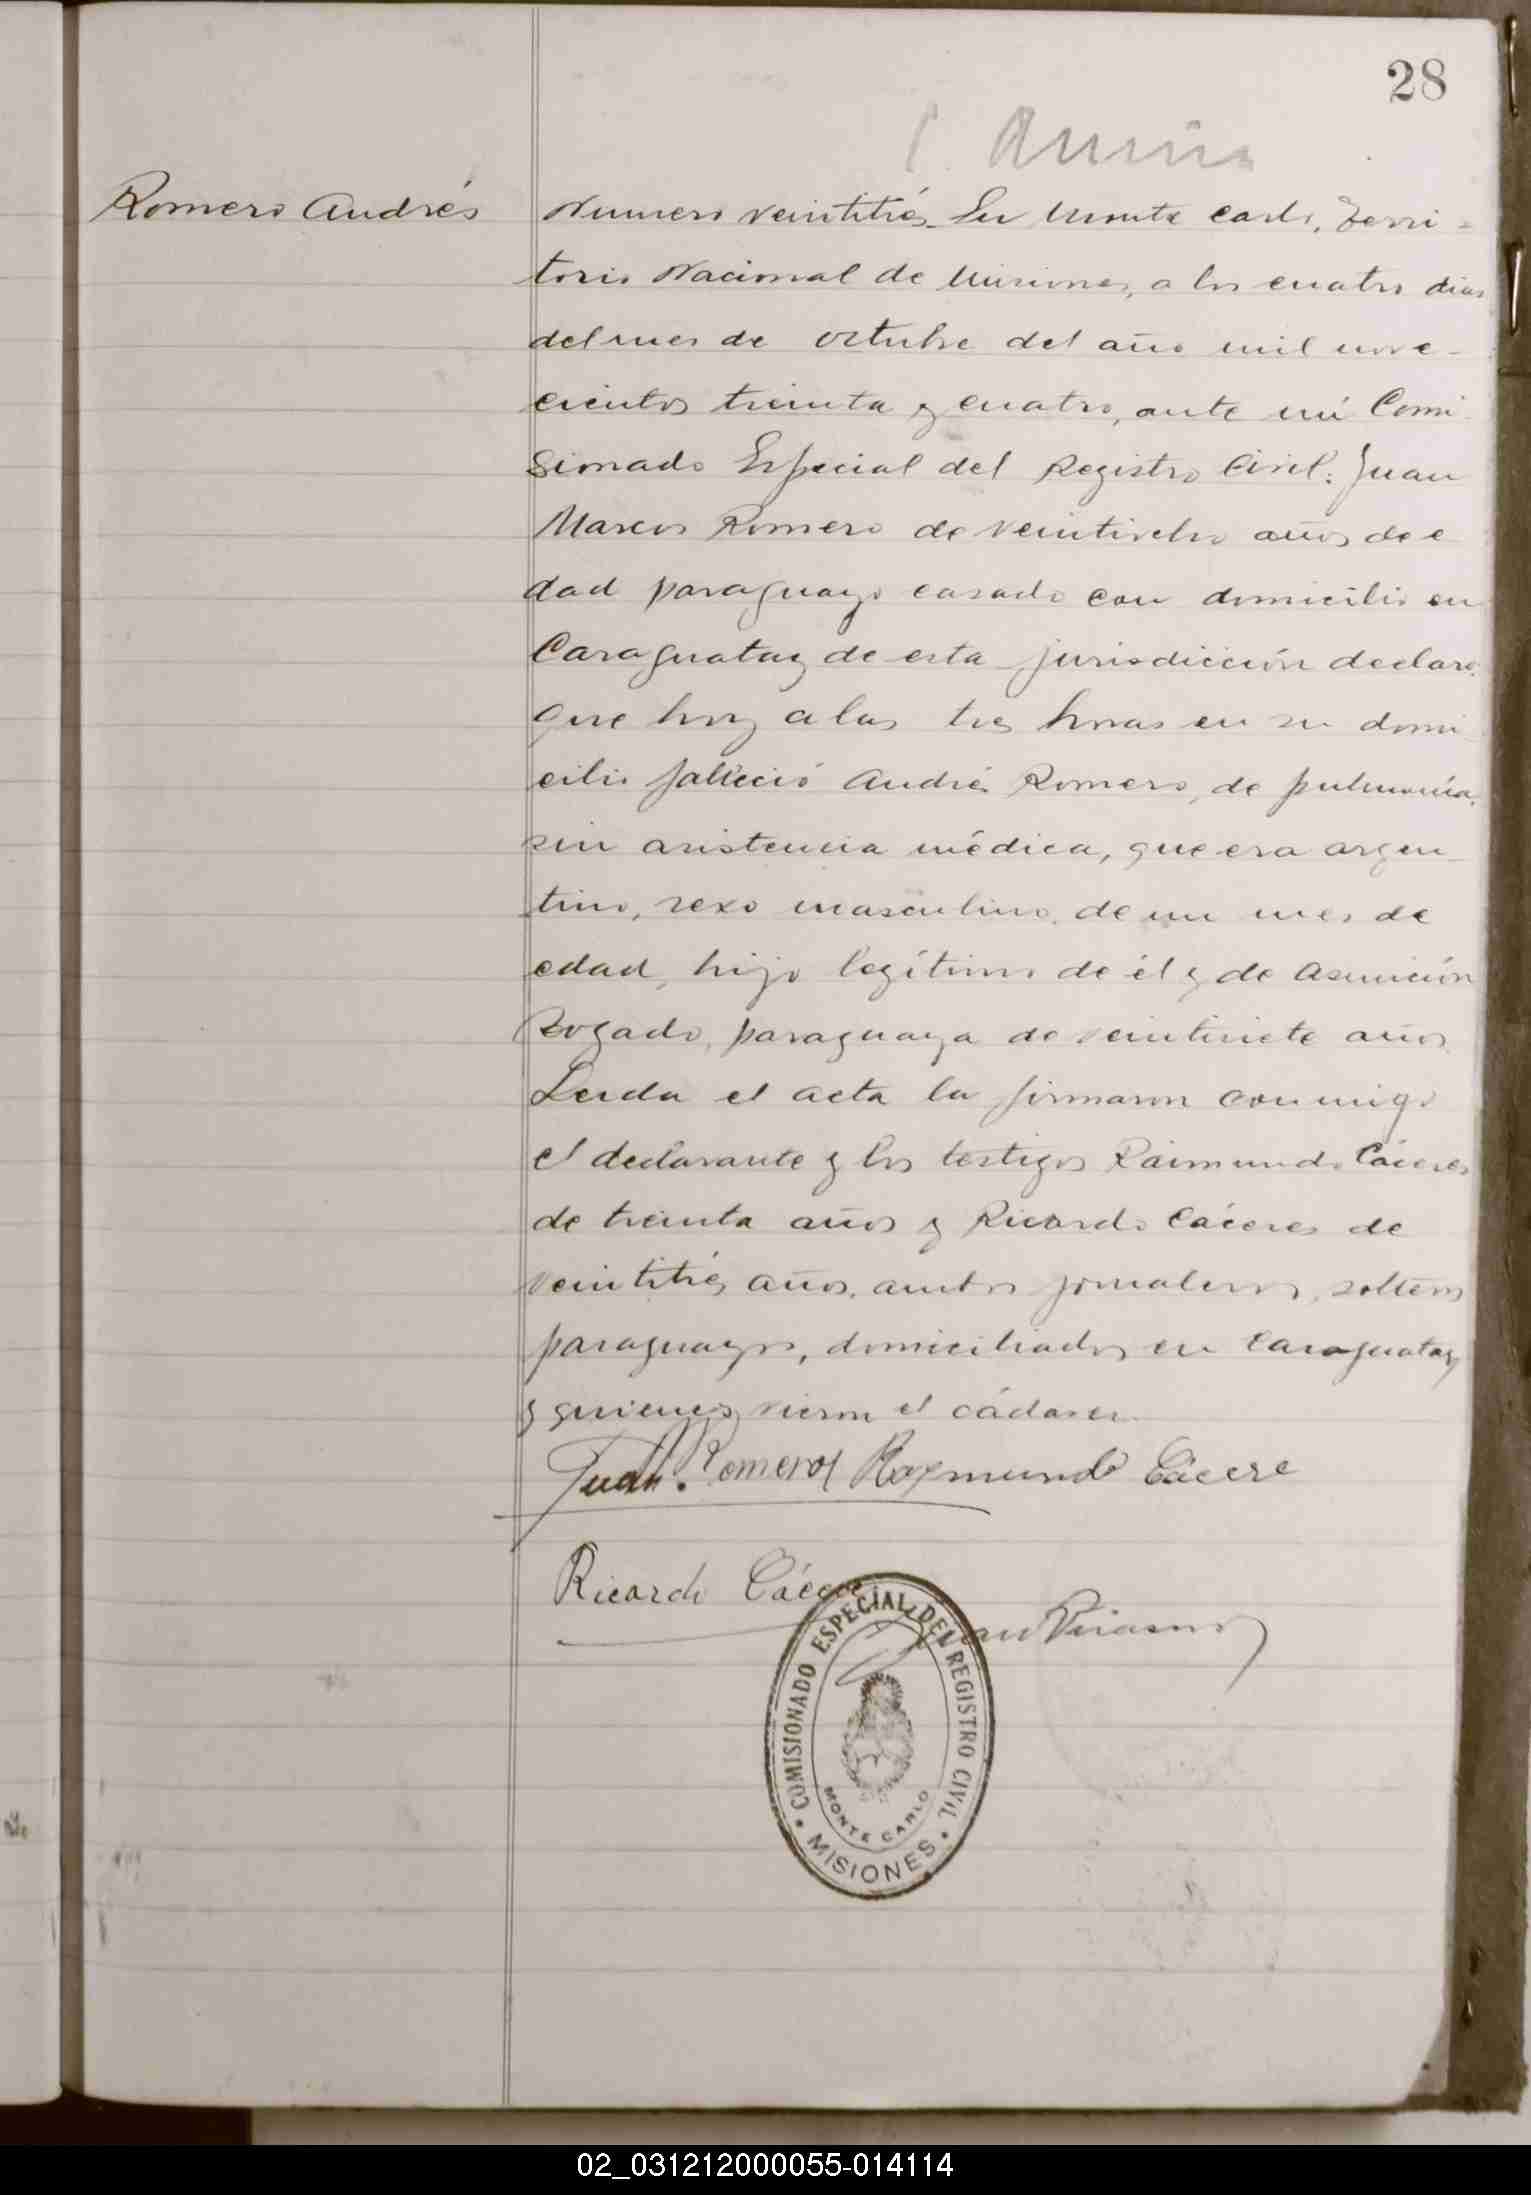 28
Romero Andrés
Numero veintitrés. En Monte Carlo, Terri-
torio Nacional de Misiones, a los cuatro dias
del mes de octubre del año mil nove-
cientos treinta y cuatro, ante mí Comi-
sionado Especial del Registro Civil: Juan
Marcos Romero de veintiocho años de e
dad paraguayo casado con domicilio en
Caraguatay de esta jurisdicción declaró:
que hoy a las tres horas en su domi
cilio falleció Andrés Romero, de pulmonía,
sin asistencia médica, que era argen-
tino, sexo masculino, de un mes de
edad, hijo legítimo de él y de Asunción
Rogado, paraguaya de veintisiete años.
Leida el acta la firmaron conmigo
el declarante y los testigos Raimundo Cáceres
de treinta años y Ricardo Cáceres de
veintitrés años, ambos jornaleros, solteros
paraguayos, domiciliados en Caraguatay
y quienes vieron el cádaver.
Juan. Romero Raymundo Cácere
Ricardo Cácere
Juan
COMISIONADO ESPECIAL DEL REGISTRO CIVIL
MONTE CARLO
MISIONES
02_031212000055-014114